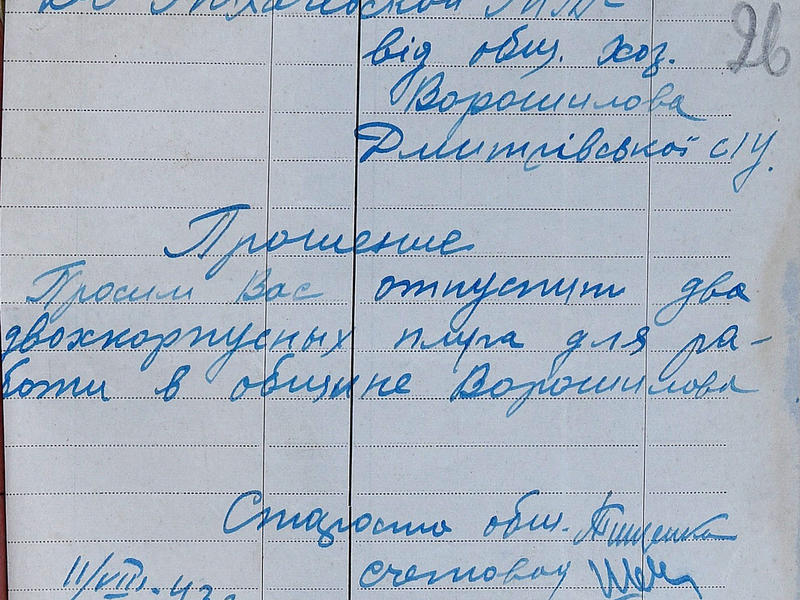 від общ. хоз.
26
Ворошилова
Дмитрівської с/у.
Прошение
Просим Вас отпустит два
двохкорпусных плуга для ра-
боти в общине Ворошилова
Староста общ.
счетовод
11/VIII-43г